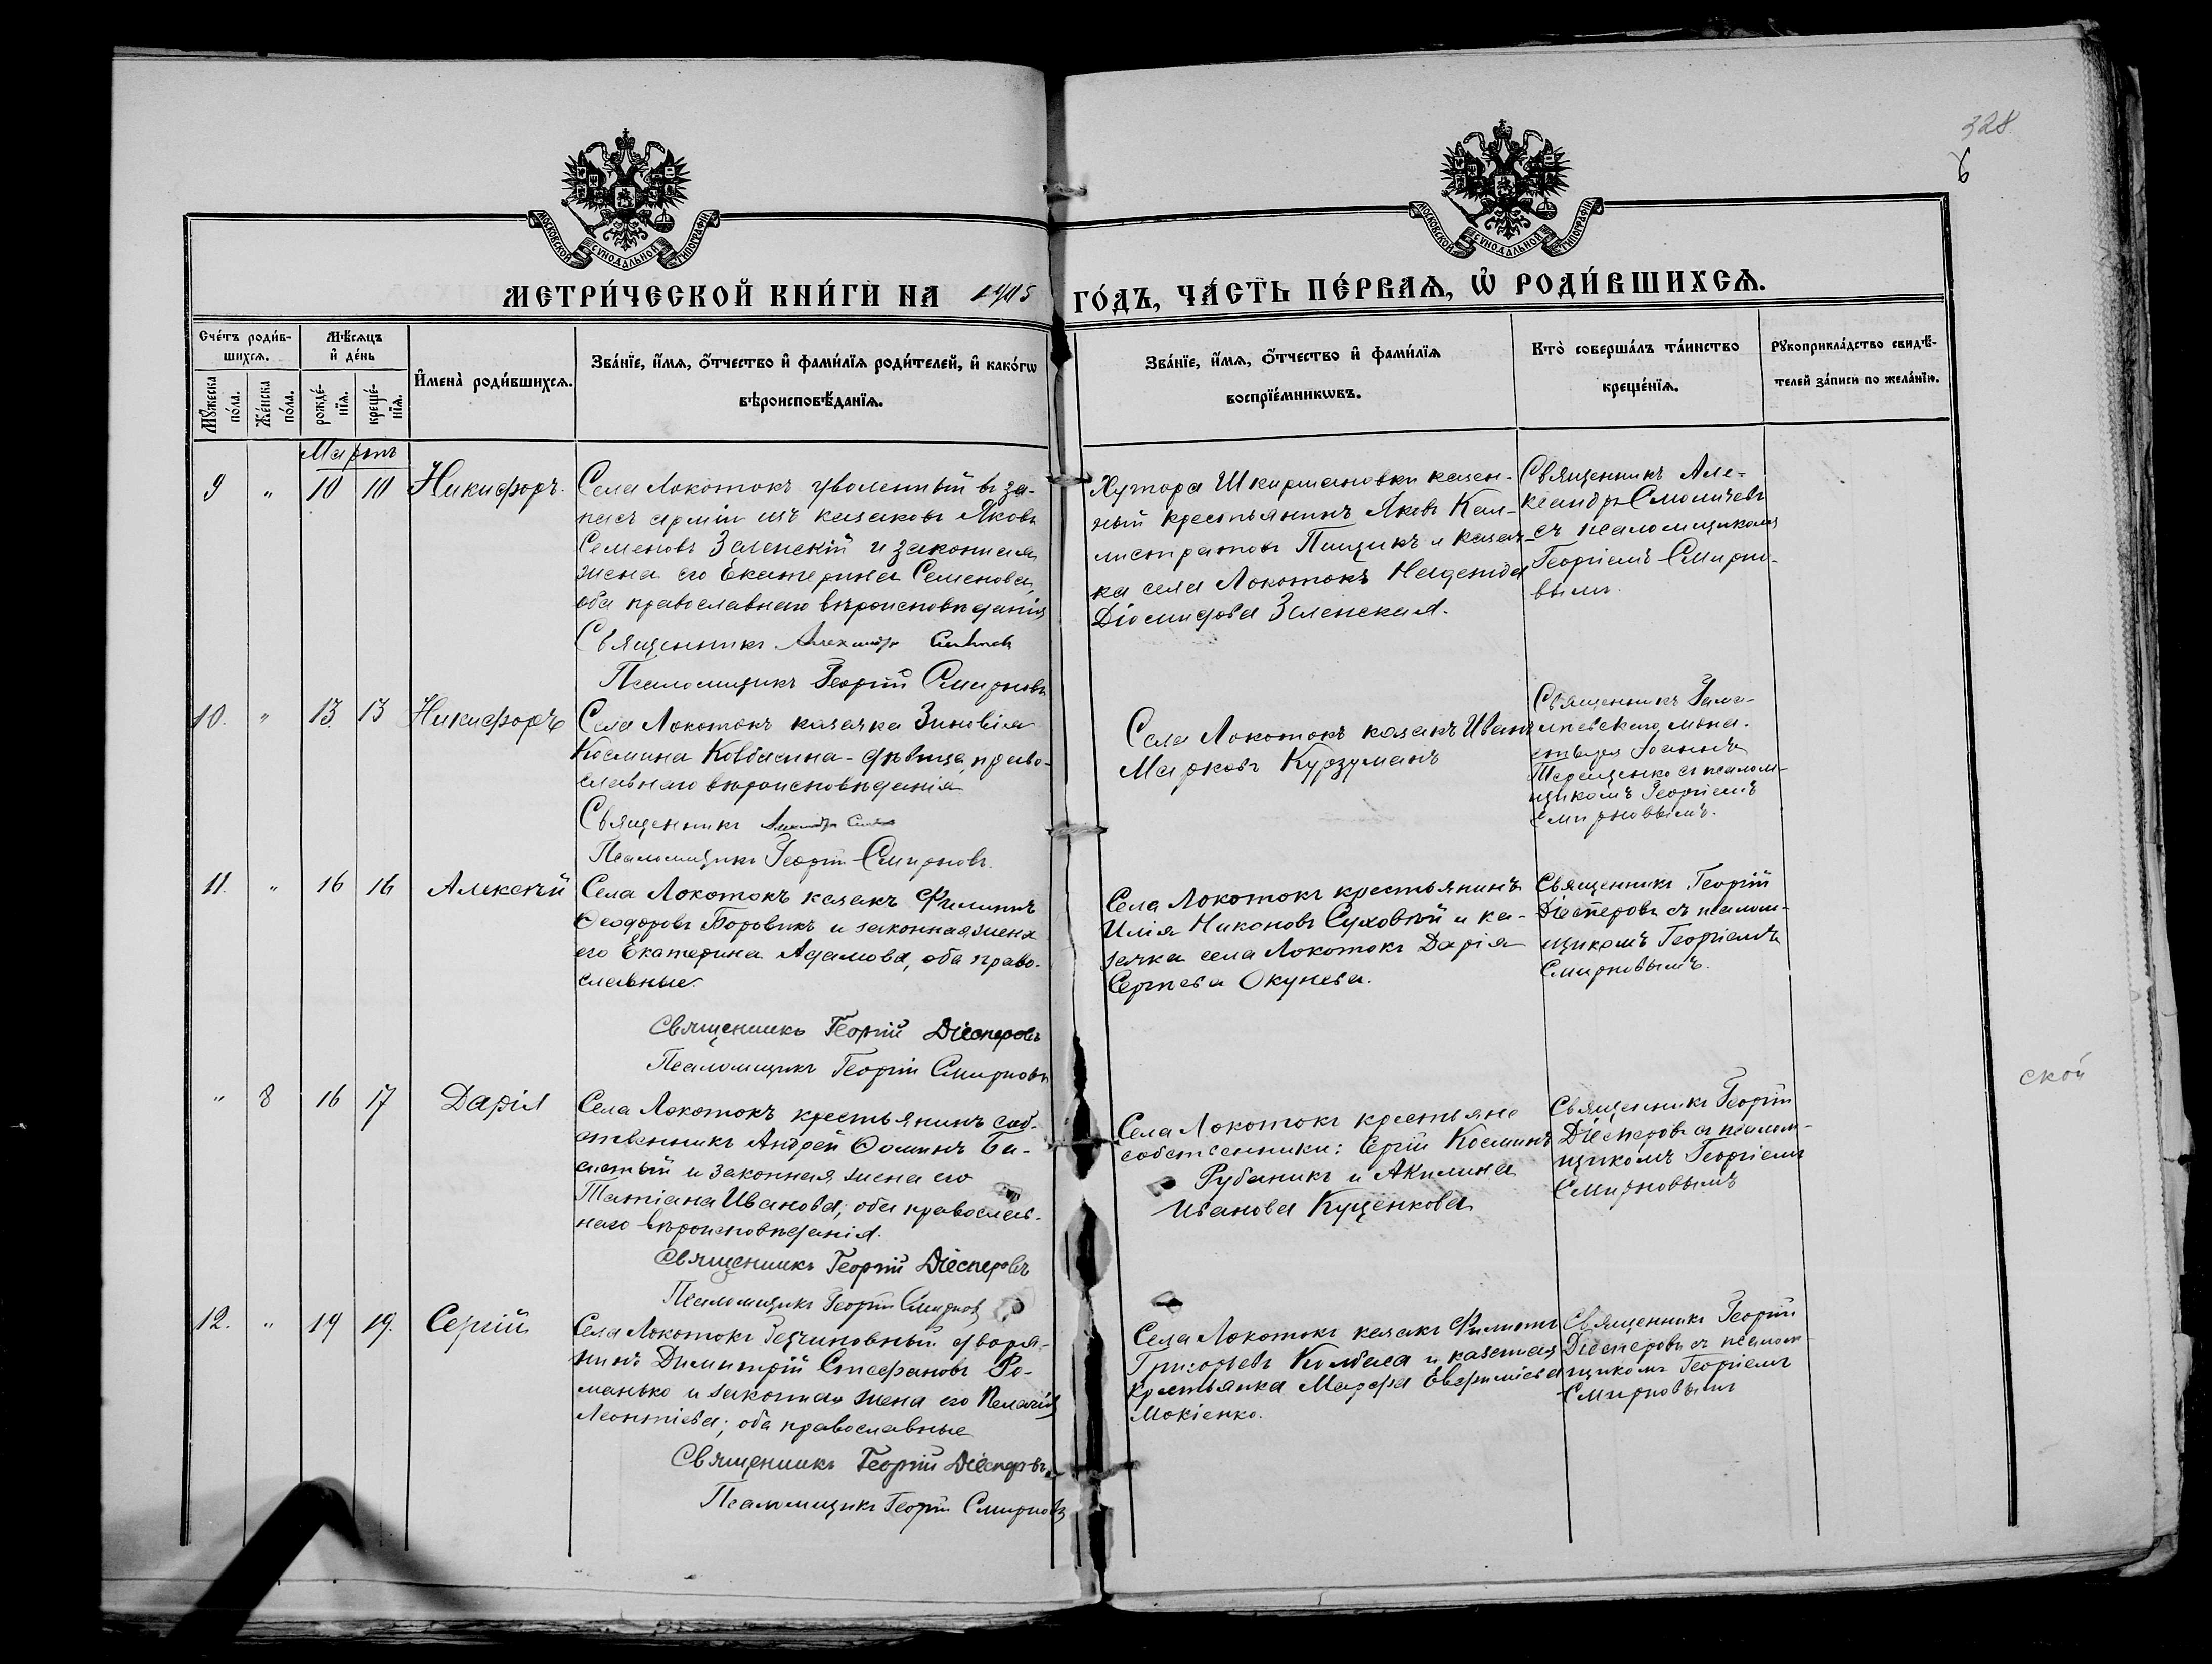 328
6
МОСКОВСКОЙ СѴНОДАЛЬНОЙ ТИПОГРАФІИ
МОСКОВСКОЙ СѴНОДАЛЬНОЙ ТИПОГРАФІИ
МЕТРИ́ЧЕСКОЙ КНИ́ГИ НА 1905 ГО́ДЪ, ЧА́СТЬ ПЕ́РВАѦ, Ѡ҆ РОДИ́ВШИХСѦ.
Сче́тъ роди́в-
шихсѧ.
Мꙋ́жеска по́ла.
Же́нска по́ла.
Мѣ́сѧцъ
и҆ де́нь
рожде́-
нїѧ.
креще́-
нїѧ.
И҆мена̀ роди́вшихсѧ.
Зва́нїе, и҆́мѧ, ѻ҆́тчество и҆ фами́лїѧ роди́телей, и҆ како́гѡ
вѣроисповѣ́данїѧ.
Зва́нїе, и҆́мѧ, ѻ҆́тчество и҆ фами́лїѧ
воспрїе́мникѡвъ.
Кто̀ соверша́лъ та́инство
креще́нїѧ.
Рꙋкоприкла́дство свидѣ́-
телей за́писи по жела́нїю.
Мартъ
9 " 10 10 Никифоръ.
Села Локотокъ уволенный въ за-
пасъ арміи изъ казаковъ Яковъ
Семеновъ Заленскій и законная
жена его Екатерина Семенова,
оба православнаго вѣроисповѣданія
Священникъ Александръ
Псаломщикъ Георгій Смирновъ
Хутора Шкирмановки казен-
ный крестьянинъ Яковъ Кал-
листратовъ Пищикъ и казач-
ка села Локотокъ Надежда
Діомидова Заленская.
Священникъ Але-
ксандръ
съ псаломщикомъ
Георгіемъ Смирно-
вымъ.
10. " 13. 13 Никифоръ
Села Локотокъ казачка Зиновія
Космина Ковбасина - дѣвица, право-
славнаго вѣроисповѣданія
Священникъ Александръ
Псаломщикъ Георгій Смирновъ.
Села Локотокъ казакъ Иванъ
Марковъ Курзуманъ
Священникъ Гама-
лѣевскаго мона-
стыря Іоаннъ
Терещенко съ псалом-
щикомъ Георгіемъ
Смирновымъ.
11. " 16 16 Алексѣй
Села Локотокъ казакъ Филиппъ
Ѳеодоровъ Боровикъ и законная жена
его Екатерина Адамова, оба право-
славные.
Священникъ Георгій Діесперовъ
Псаломщикъ Георгій Смирновъ
Села Локотокъ крестьянинъ
Илія Никоновъ Суховѣй и ка-
зачка села Локотокъ Дарія
Сергѣева Окунева.
Священникъ Георгій
Діесперовъ съ псалом-
щикомъ Георгіемъ
Смирновымъ.
" 8 16 17 Дарія
Села Локотокъ крестьянинъ соб-
ственникъ Андрей Ѳоминъ Ба-
систый и законная жена его
Татіана Иванова; оба православ-
наго вѣроисповѣданія.
Священникъ Георгій Діесперовъ
Псаломщикъ Георгій Смирновъ
Села Локотокъ крестьяне
собственники: Сергій Косминъ
Рубаникъ и Акилина
Иванова Куценкова
Священникъ Георгій
Діесперовъ съ псалом-
щикомъ Георгіемъ
Смирновымъ
ской
12. " 19 19. Сергій
Села Локотокъ безчиновный дворя-
нинъ Димитрій Стефановъ Ро-
манько и законная жена его Пелагія
Леонтіева; оба православные
Священникъ Георгій Діесперовъ
Псаломщикъ Георгій Смирновъ
Села Локотокъ казакъ Филиппъ
Григорьевъ Колбаса и казенная
крестьянка Марфа Евфиміева
Мокіенко.
Священникъ Георгій
Діесперовъ съ псалом-
щикомъ Георгіемъ
Смирновымъ